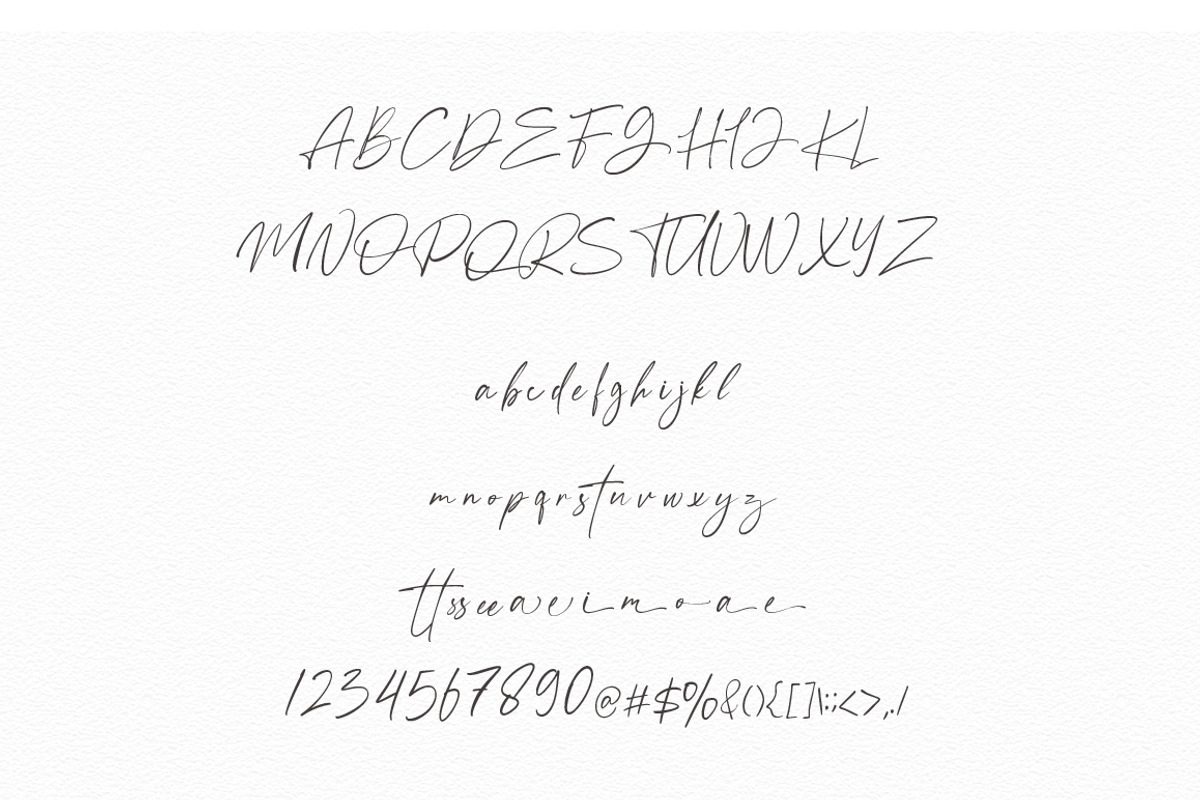 ABCDEFGHIJKL
MNOPQRSTUVWXYZ
abcdefghijkl
mnopqrstuvwxyz
ttsseeaeimoae
1234567890@#$%&(){[]\:;<>,./